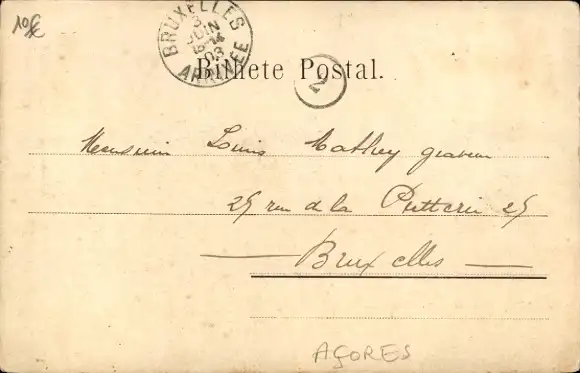 10€
BRUXELLES
3
JUIN
15-16
03
ARRIVÉE
Bilhete Postal.
2
Monsieur Louis Mathey graveur
25 rue de la Putterie 25
Bruxelles
AÇORES